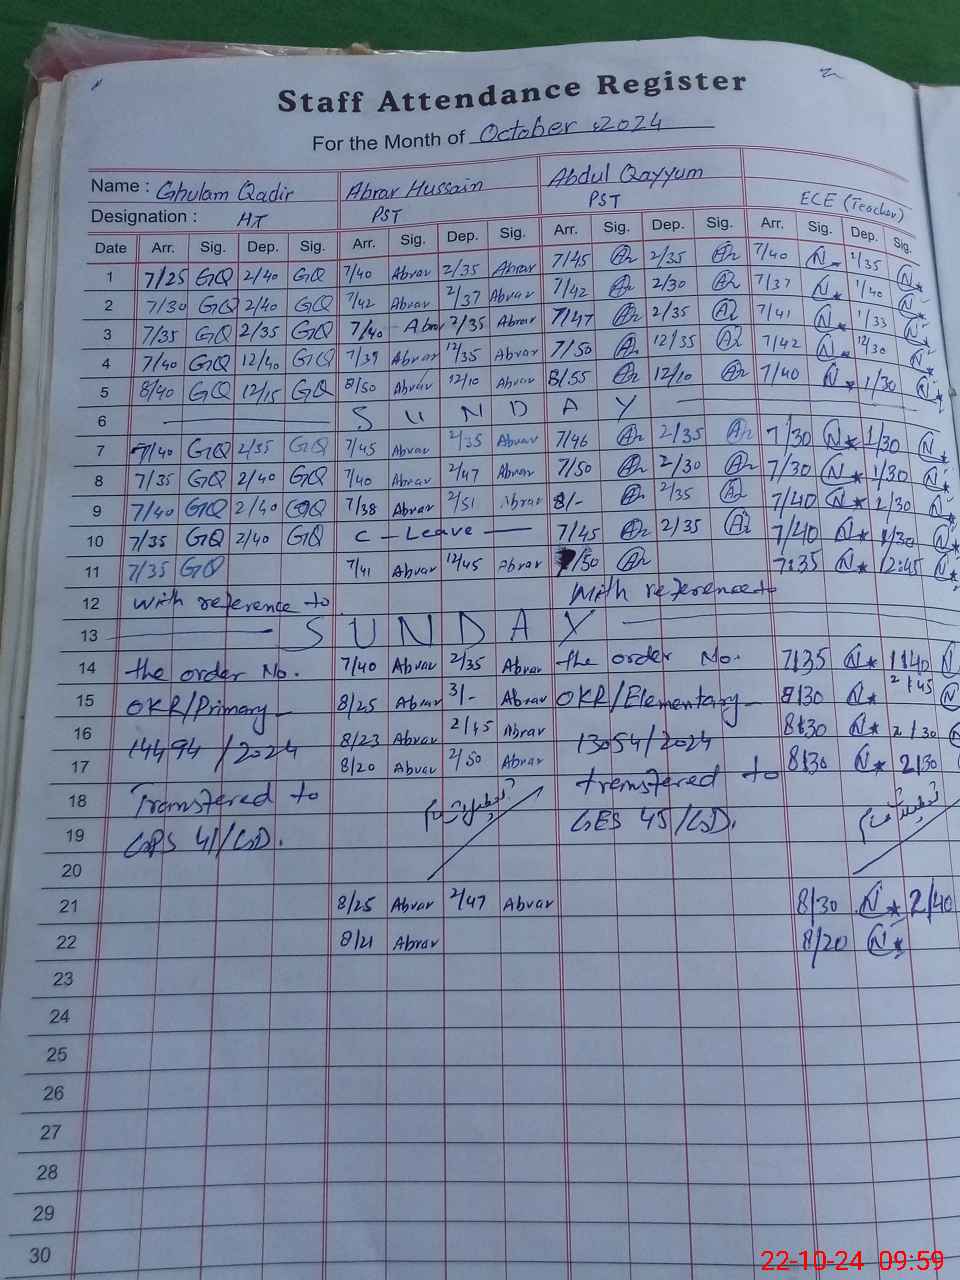 Staff Attendance Register
For the Month of October, 2024
Name : Ghulam Qadir Abrar Hussain Abdul Qayyum
Designation : HT PST PST ECE (Teacher)
Date Arr. Sig. Dep. Sig. Arr. Sig. Dep. Sig. Arr. Sig. Dep. Sig. Arr. Sig. Dep. Sig.
1 7/25 GQ 2/40 GQ 7/40 Abrar 2/35 Abrar 7/45 2/35 7/40 N 1/35 N
2 7/30 GQ 2/40 GQ 7/42 Abrar 2/37 Abrar 7/42 2/30 7/37 N 1/40 N
3 7/35 GQ 2/35 GQ 7/40 Abrar 2/35 Abrar 7/47 2/35 7/41 N 1/33 N
4 7/40 GQ 12/40 GQ 7/39 Abrar 12/35 Abrar 7/50 12/35 7/42 N 12/30 N
5 8/40 GQ 12/15 GQ 8/50 Abrar 12/10 Abrar 8/55 12/10 7/40 N 1/30 N
6 SUNDAY
7 7/40 GQ 2/35 GQ 7/45 Abrar 2/35 Abrar 7/46 2/35 7/30 N 1/30 N
8 7/35 GQ 2/40 GQ 7/40 Abrar 2/47 Abrar 7/50 2/30 7/30 N 1/30 N
9 7/40 GQ 2/40 GQ 7/38 Abrar 2/51 Abrar 8/- 2/35 7/40 N 1/30 N
10 7/35 GQ 2/40 GQ C - Leave - 7/45 2/35 7/40 N 1/30 N
11 7/35 GQ 7/41 Abrar 12/45 Abrar 7/50 7:35 N 12:45 N
12 with reference to with reference to
13 SUNDAY
14 the order No. 7/40 Abrar 2/35 Abrar the order No. 7:35 N 1:40 N
15 OKR/Primary- 8/25 Abrar 3/- Abrar OKR/Elementary- 8:30 N 2:45 N
16 14494/2024 8/23 Abrar 2/45 Abrar 13054/2024 8:30 N 2/30
17 8/20 Abrar 2/50 Abrar 8:30 N 2:30
18 Transfered to transfered to
19 GPS 41/GD. GES 45/GD.
20
21 8/25 Abrar 2/47 Abrar 8/30 N 2/40
22 8/21 Abrar 8/20 N
23
24
25
26
27
28
29
30
22-10-24 09:59